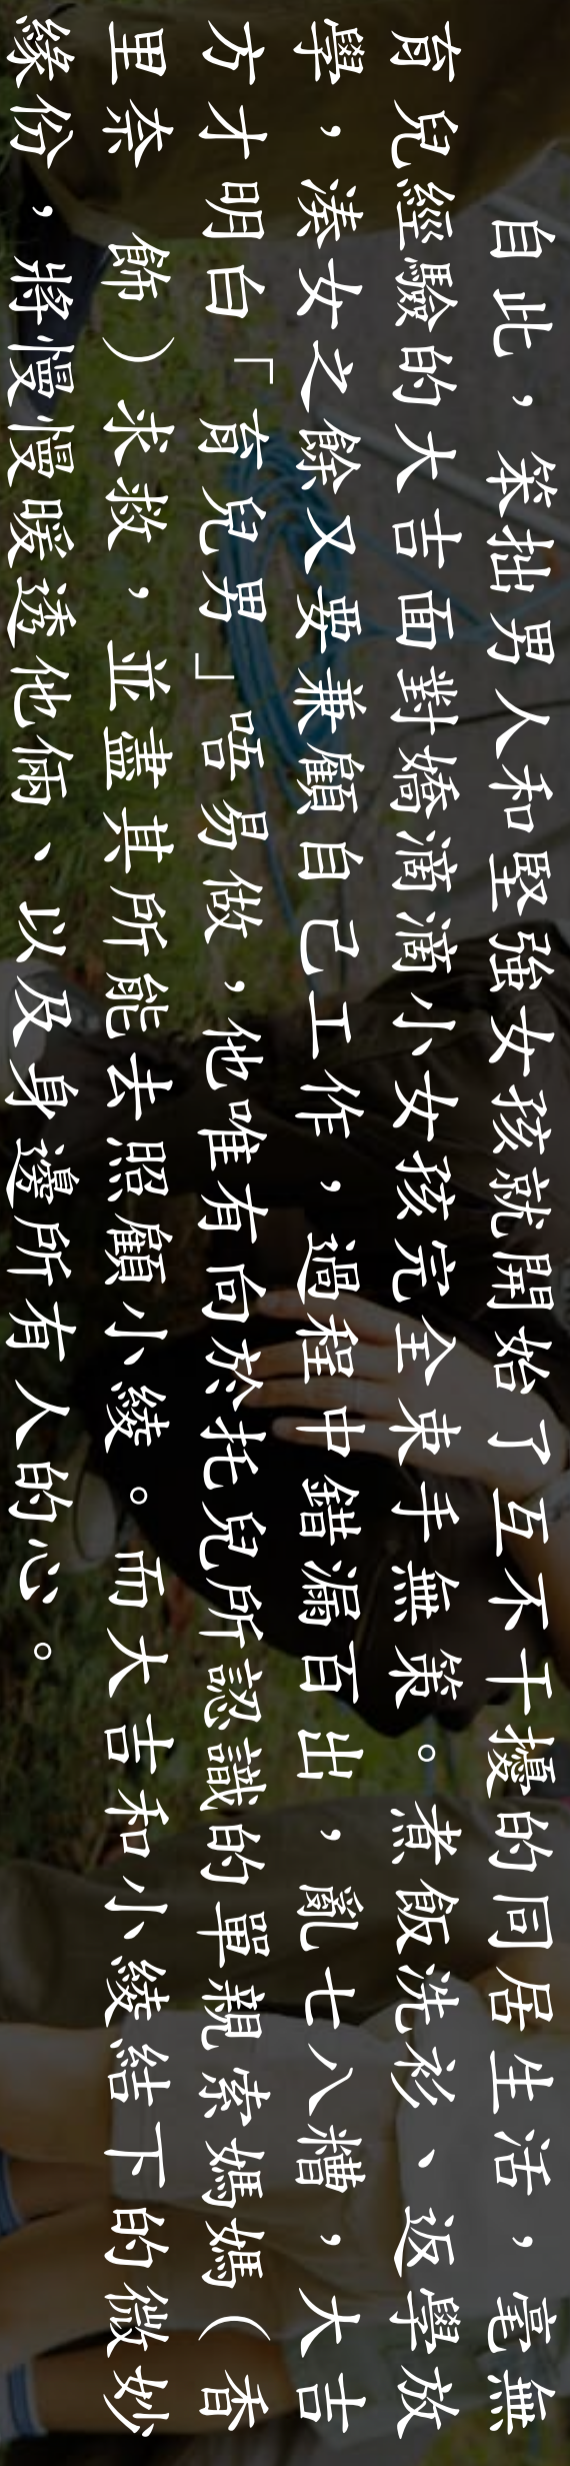 自此，笨拙男人和堅強女孩就開始了互不干擾的同居生活，毫無
育兒經驗的大吉面對嬌滴滴小女孩完全束手無策。煮飯洗衫、返學放
學，湊女之餘又要兼顧自己工作，過程中錯漏百出，亂七八糟，大吉
方才明白「育兒男」唔易做，他唯有向於托兒所認識的單親索媽媽（香
里奈 飾）求救，並盡其所能去照顧小綾。而大吉和小綾結下的微妙
緣份，將慢慢暖透他倆、以及身邊所有人的心。